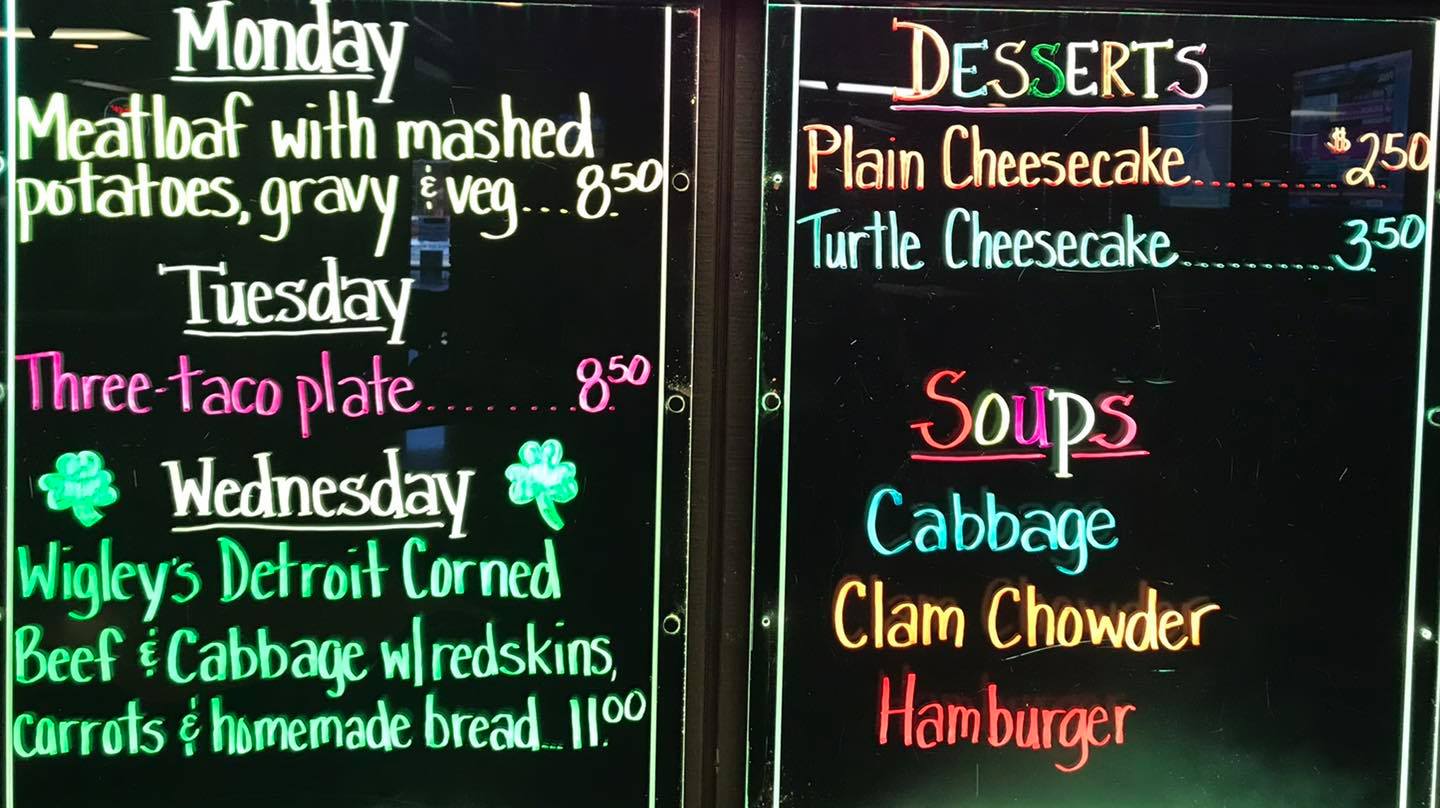 Monday
Meatloaf with mashed
potatoes, gravy & veg...8.50
Tuesday
Three-taco plate.........8.50
Wednesday
Wigley's Detroit Corned
Beef & Cabbage w/redskins,
carrots & homemade bread...11.00
DESSERTS
Plain Cheesecake..........$2.50
Turtle Cheesecake...........3.50
Soups
Cabbage
Clam Chowder
Hamburger